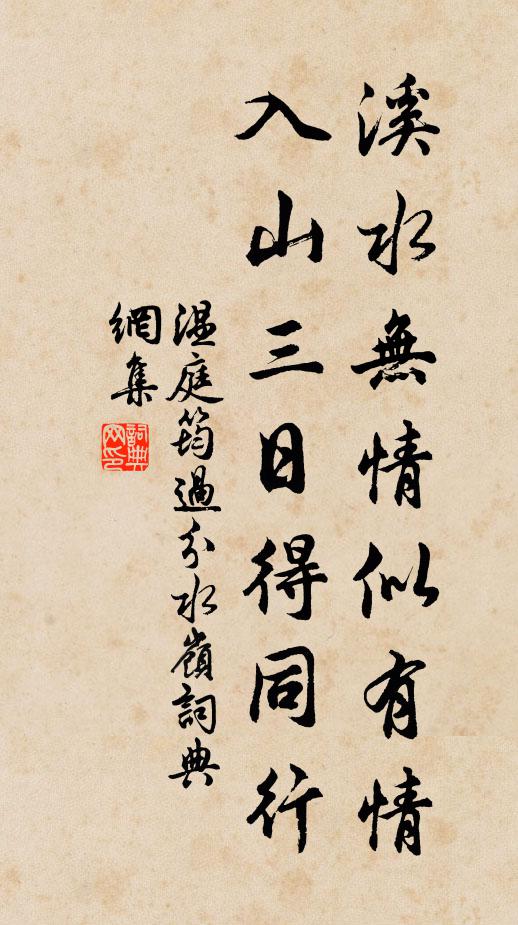 溪水無情似有情
入山三日得同行
温庭筠過分水嶺詞典
網集
詞典
网印